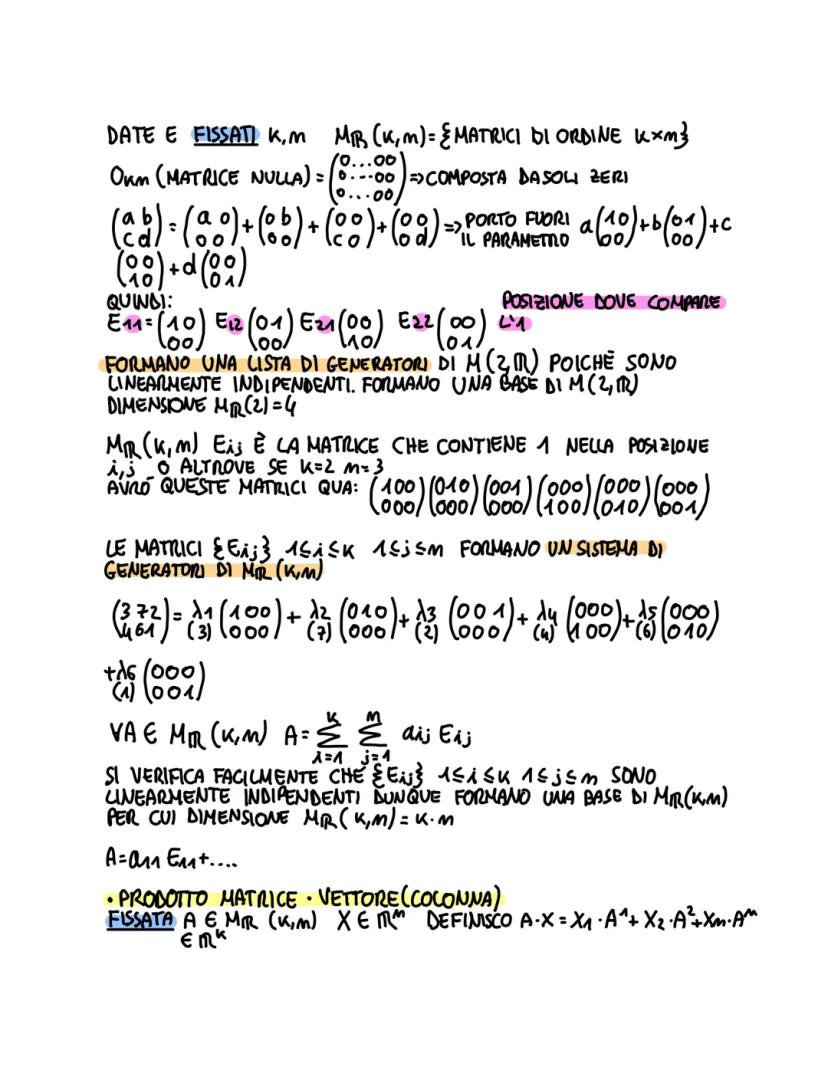 DATE E FISSATI K,m M_R (K,m)={MATRICI DI ORDINE K×m}
O_Km (MATRICE NULLA) = (0...00 / 0...00 / 0...00) => COMPOSTA DA SOLI ZERI
(a b / c d) = (a 0 / 0 0) + (0 b / 0 0) + (0 0 / c 0) + (0 0 / 0 d) => PORTO FUORI IL PARAMETRO a(10 / 00)+b(01 / 00)+c
(00 / 10) + d(00 / 01)
QUINDI: POSIZIONE DOVE COMPARE
E11=(10 / 00) E12(01 / 00) E21(00 / 10) E22(00 / 01) L'1
FORMANO UNA LISTA DI GENERATORI DI M(2,R) POICHÈ SONO
LINEARMENTE INDIPENDENTI. FORMANO UNA BASE DI M(2,R)
DIMENSIONE M_R(2)=4
M_R(K,m) Eij È LA MATRICE CHE CONTIENE 1 NELLA POSIZIONE
i,j 0 ALTROVE SE K=2 m=3
AVRÒ QUESTE MATRICI QUA: (100 / 000)(010 / 000)(001 / 000)(000 / 100)(000 / 010)(000 / 001)
LE MATRICI {Eij} 1≤i≤K 1≤j≤m FORMANO UN SISTEMA DI
GENERATORI DI M_R (K,m)
(372 / 461) = λ1 (3) (100 / 000) + λ2 (7) (010 / 000) + λ3 (2) (001 / 000) + λ4 (4) (000 / 100) + λ5 (6) (000 / 010)
+λ6 (1) (000 / 001)
∀A ∈ M_R (K,m) A= Σ_{i=1}^{K} Σ_{j=1}^{m} aij Eij
SI VERIFICA FACILMENTE CHE {Eij} 1≤i≤K 1≤j≤m SONO
LINEARMENTE INDIPENDENTI DUNQUE FORMANO UNA BASE DI M_R(K,m)
PER CUI DIMENSIONE M_R(K,m)=K·m
A=a11 E11+....
• PRODOTTO MATRICE · VETTORE(COLONNA)
FISSATA A ∈ M_R (K,m) X ∈ R^m DEFINISCO A·X = X1·A^1+ X2·A^2+Xm·A^m
∈ R^K